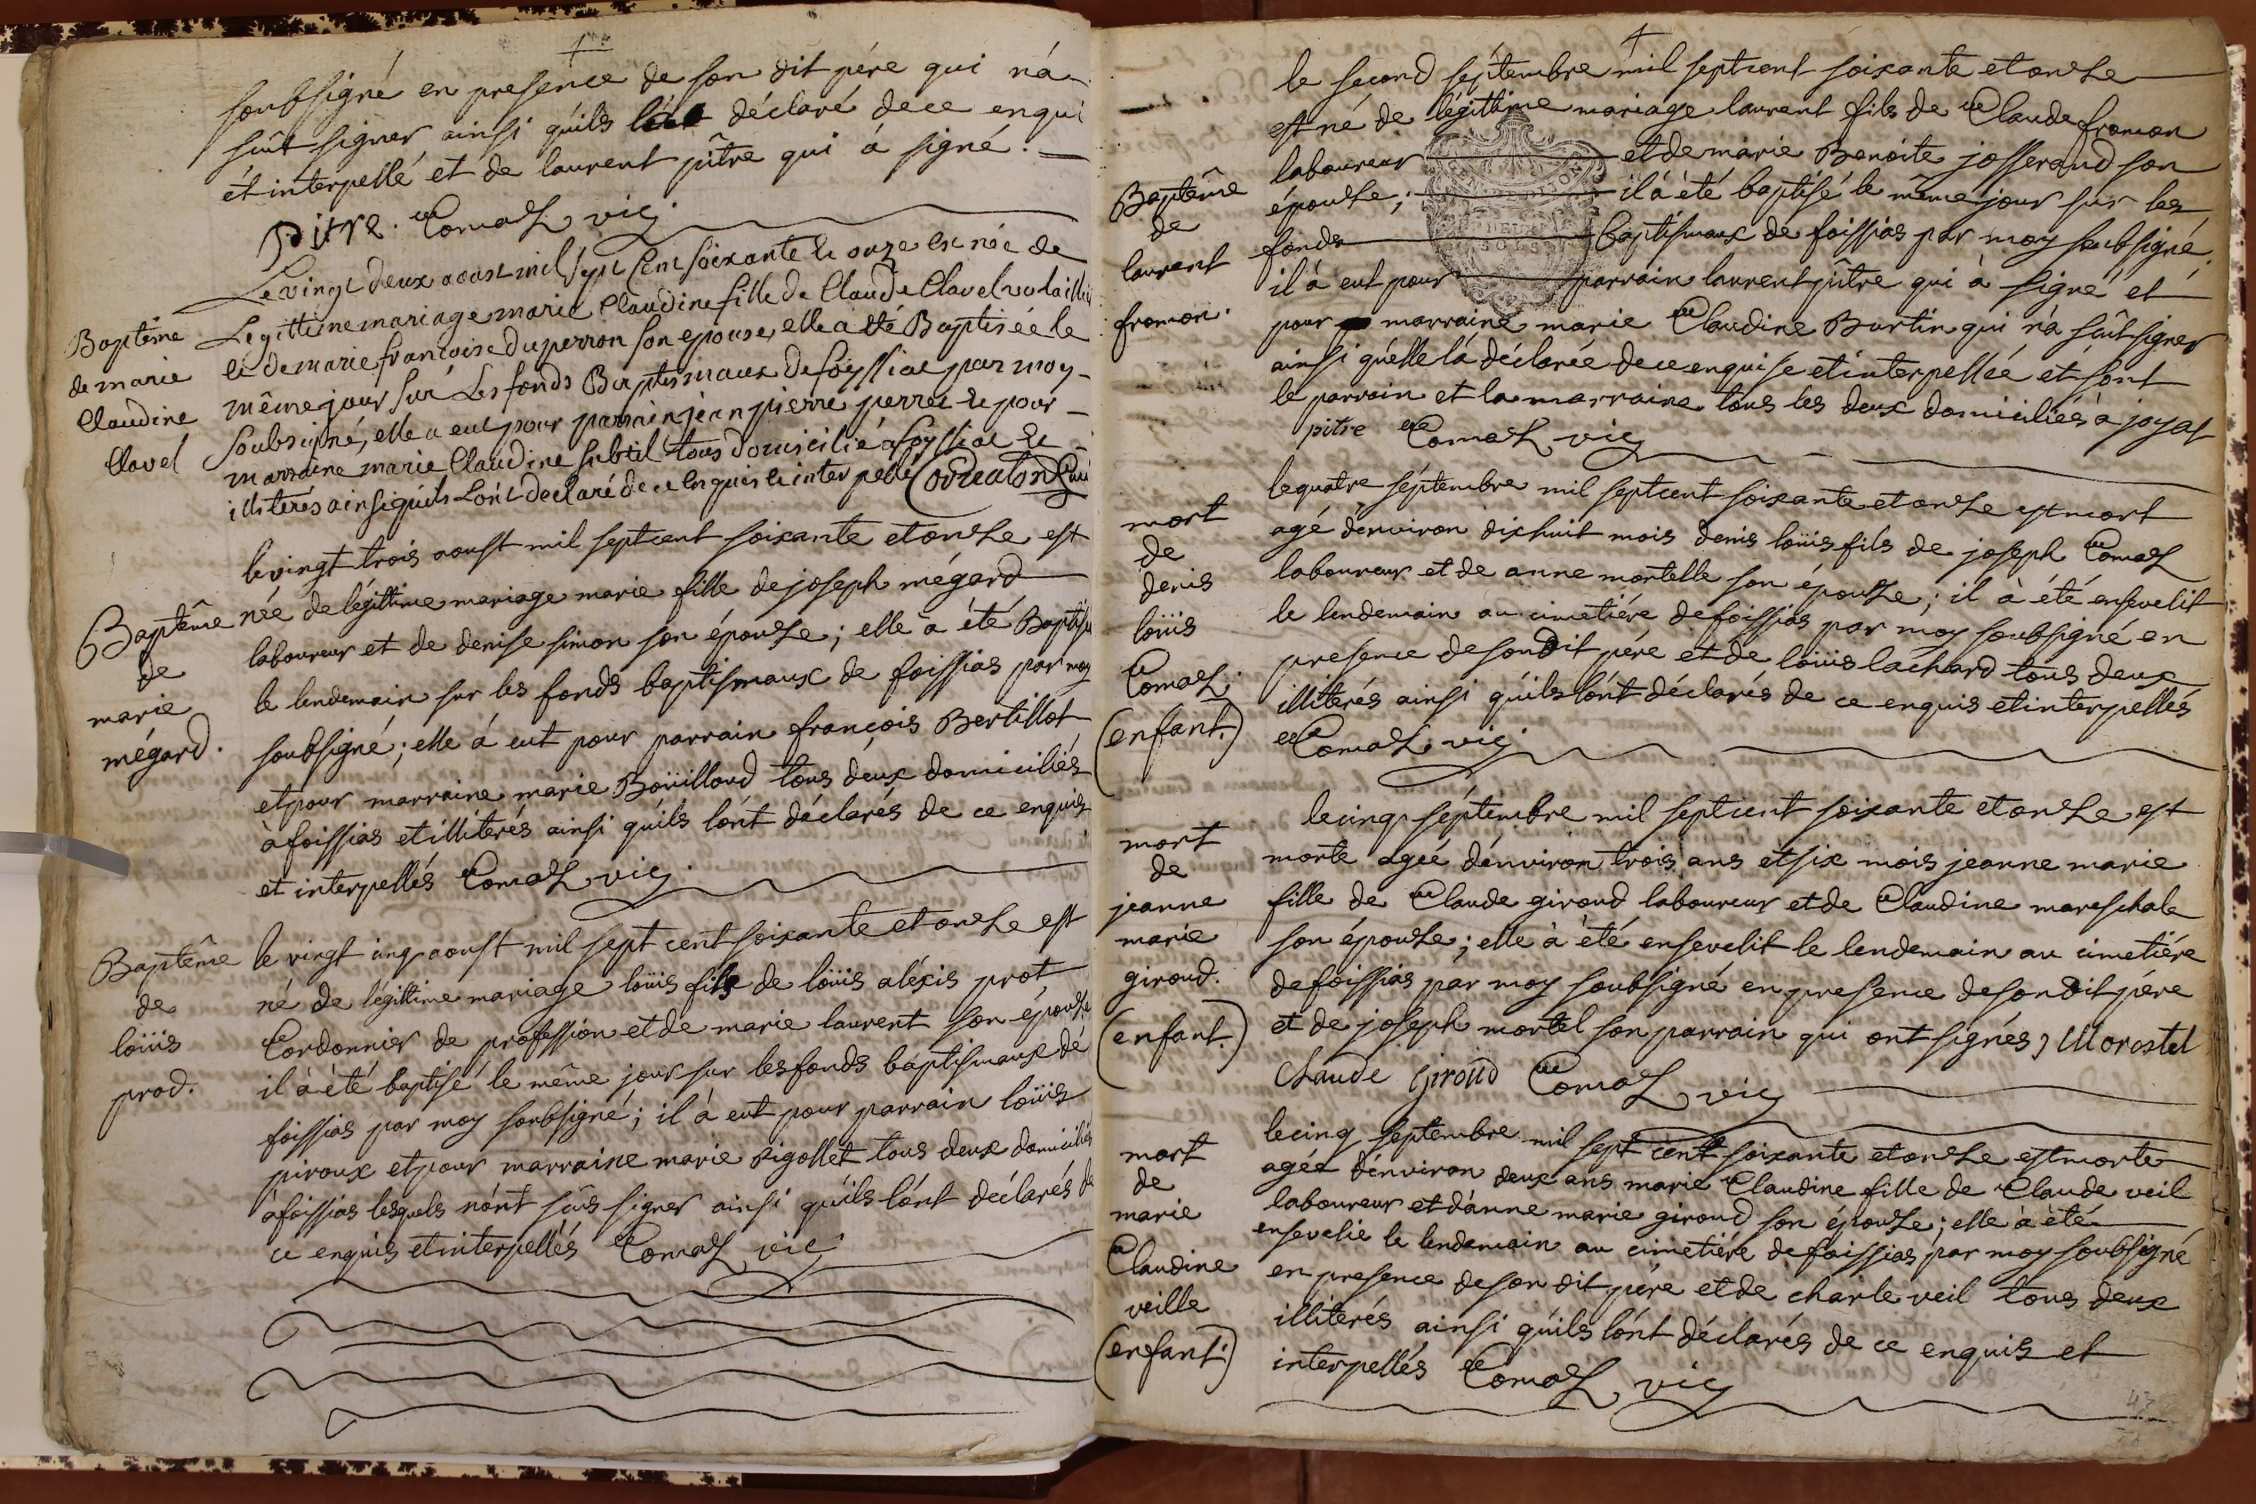 soubsigné en presence de son dit pére qui n'á
sçut signer ainsi qu'ils déclaré de ce enqui
ét interpellé et de laurent pître qui á signé.
Pitre. Comas vic.
Le vingt deux aoust mil sept Cent soixante et onze est née de
Legittime mariage marie Claudine fille de Claude Clavel
et de marie francoise duperron son epouse, elle a été Baptisée le
même jour sur Les fonds Baptismaux de foyssiat par moy
soubsigné, elle a eut pour parrain jean pierre perret et pour
marraine marie Claudine subtil tous domicilié a foyssiat et
illiterés ainsi qu'ils L'ont declaré de ce enquis et interpellé
Baptême
de marie
Claudine
Clavel
le vingt trois aoust mil septcent soixante et onze est
née de légittime mariage marie fille de joseph mégard
laboureur et de denise simon son épouse; elle à été Baptisée
le lendemain sur les fonds baptismaux de foissias par moy
soubsigné; elle á eut pour parrain françois Bertillot
et pour marraine marie Boüilloud tous déux domiciliés
à foissias et illiterés ainsi qu'ils l'ónt déclarés de ce enquis
et interpellés Comas vic.
Baptême
de
marie
mégard.
le vingt cinq aoust mil sept cent soixante et onze est
né de légittime mariage loüis fils de loüis aléxis prot
Cordonnier de profession et de marie laurent son épouse
il à été baptisé le même jour sur les fonds baptismaux dé
foissias par moy soubsigné; il à eut pour parrain loüis
piroux et pour marraine marie Rigollet tous deux domiciliés
à foissias lesquels n'ónt sçûs signer ainsi qu'ils l'ónt déclarés de
ce enquis et interpellés Comas vic.
Baptême
de
loüis
prod.
le second séptembre mil septcent soixante et onze
est né de légittime mariage laurent fils de Claude froman
laboureur et de marie Benoite josserand son
épouse; il à été baptisé le même jour sur les
fonds Baptismaux de foissias par moy soubsigné.
il á eut pour parrain laurent pître qui à signé et
pour marraine marie Claudine Burtin qui n'á sçût signer
ainsi qu'elle l'á déclarée de ce enquise et interpellée ét sont
le parrain et la marraine tous les deux domiciliés à jayat
pitre Comas vic
Baptême
de
laurent
froman.
DEUX
SOLS
le quatre séptembre mil septcent soixante et onze est mort
agé d'énviron dixhuit mois denis loüis fils de joseph Comas
laboureur et de anne mortelle son épouse; il à été ensevelit
le lendemain au cimetiére de foissias par moy soubsigné en
presence de son dit pére et de loüis lachard tous deux
illiterés ainsi qu'ils l'ónt déclarés de ce enquis et interpellés
Comas vic.
mort
de
denis
loüis
Comas.
(enfant.)
le cinq séptembre mil septcent soixante et onze est
morte agée d'énviron trois ans et six mois jeanne marie
fille de Claude giroud laboureur et de Claudine mareschale
son épouse; elle à été ensevelit le lendemain au cimetiére
de foissias par moy soubsigné en presence de son dit pére
et de joseph mortel son parrain qui ont signés, Morestel
Claude Giroud Comas vic
mort
de
jeanne
marie
giroud.
(enfant.)
le cinq septembre mil sept cent soixante et onze est morte
agée d'énviron deux ans marie Claudine fille de Claude veil
laboureur et d'ánne marie giroud son épouse; elle à été
ensevelie le lendemain au cimetiére de foissias par moy soubsigné
en presence de son dit pére et de charle veil tous deux
illiterés ainsi qu'ils l'ónt déclarés de ce enquis et
interpellés Comas vic
mort
de
marie
Claudine
veille
(enfant.)